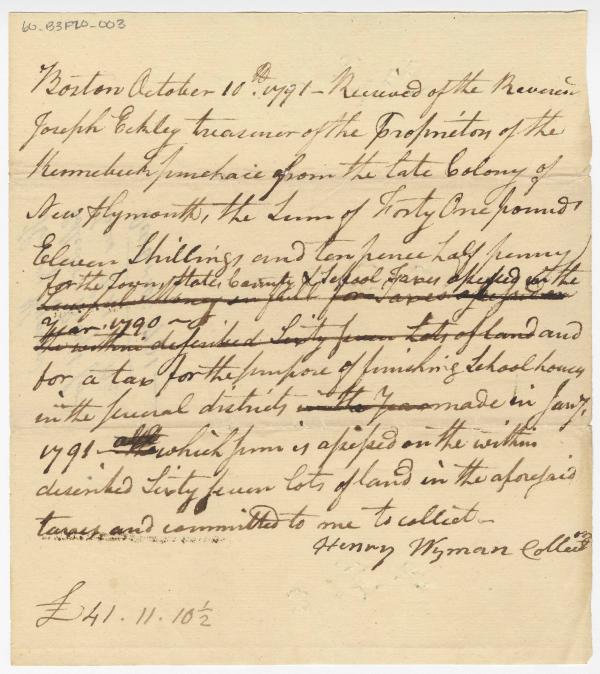 60-B3F20-003
Boston October 10th. 1791 - Received of the Reverend
Joseph Eckley treasurer of the Proprietors of the
Kennebeck purchase from the late Colony of
New Plymouth, the Sum of Forty One pounds
Eleven Shillings and ten pence half penny
for the Town, State, County & School Taxes assessed in the
Lawful Money in full for Taxes assessed on
Year 1790 -
the within described Sixty seven Lots of land and
for a tax for the purpose of finishing School houses
in the several districts in the Year made in Jany.
1791 - which sum is assessed on the within
described Sixty seven lots of land in the aforesaid
taxes and committed to me to collect -
Henry Wyman Collector
£ 41 . 11 . 10 ½